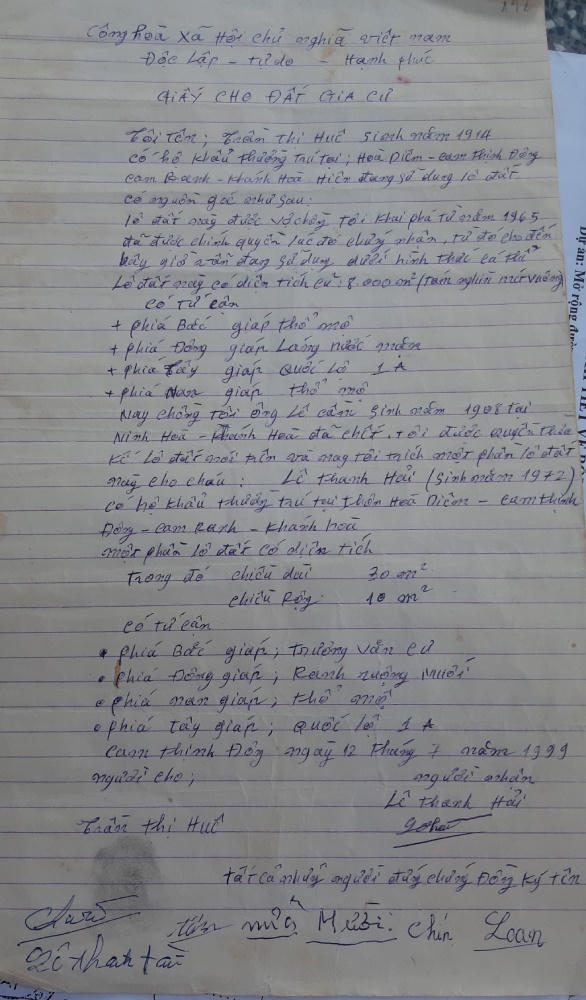 Cộng hoà Xã Hội chủ nghĩã việt nam
Độc Lập - tự do - Hạnh phúc
GIẤY CHO ĐẤT GIA CƯ
Tôi tên; Trần Thị Huê sinh năm 1914
có hộ khẩu thường trú tại; Hoà Diêm - cam thịnh Đông
cam Ranh - Khánh Hoà Hiện đang sử dụng lô đất
có nguồn gốc như sau:
lô đất nầy được vợ chồng tôi khai phá từ năm 1965
đã được chính quyền lúc đó chứng nhận, từ đó cho đến
bây giờ vẫn đang sử dụng dưới hình thức cá thể
Lô đất nầy có diện tích là: 8.000 m² (tám nghìn mét vuông
có tứ cận
+ phiá Bắc giáp thổ mộ
+ phiá Đông giáp Làng nước mắm
+ phiá Tây giáp Quốc lộ 1A
+ phiá Nam giáp thổ mộ
Nay chồng tôi ông Lê cầm sinh năm 1908 tại
Ninh Hoà - Khánh Hoà đã chết. tôi được quyền thừa
kế lô đất nói trên và nay tôi trích một phần lô đất
nầy cho cháu: Lê thanh Hải (sinh năm 1972)
có hộ khẩu thường trú tại thôn Hoà Diêm - cam thịnh
Đông - cam Ranh - Khánh hoà
một phần lô đất có diện tích
Trong đó chiều dài 30 m²
chiều Rộng: 10 m²
có tứ cận
• phiá Bắc giáp; Trương văn cư
• phiá Đông giáp; Ranh ruộng muối
• phiá nam giáp; thổ mộ
• phiá tây giáp; Quốc lộ 1A
cam thịnh Đông ngaỳ 12 tháng 7 năm 1999
người cho; người nhận
Lê thanh Hải
Trần thị Huê
tất cả những người đứng chứng Đồng ký tên
Mười: chín Loan